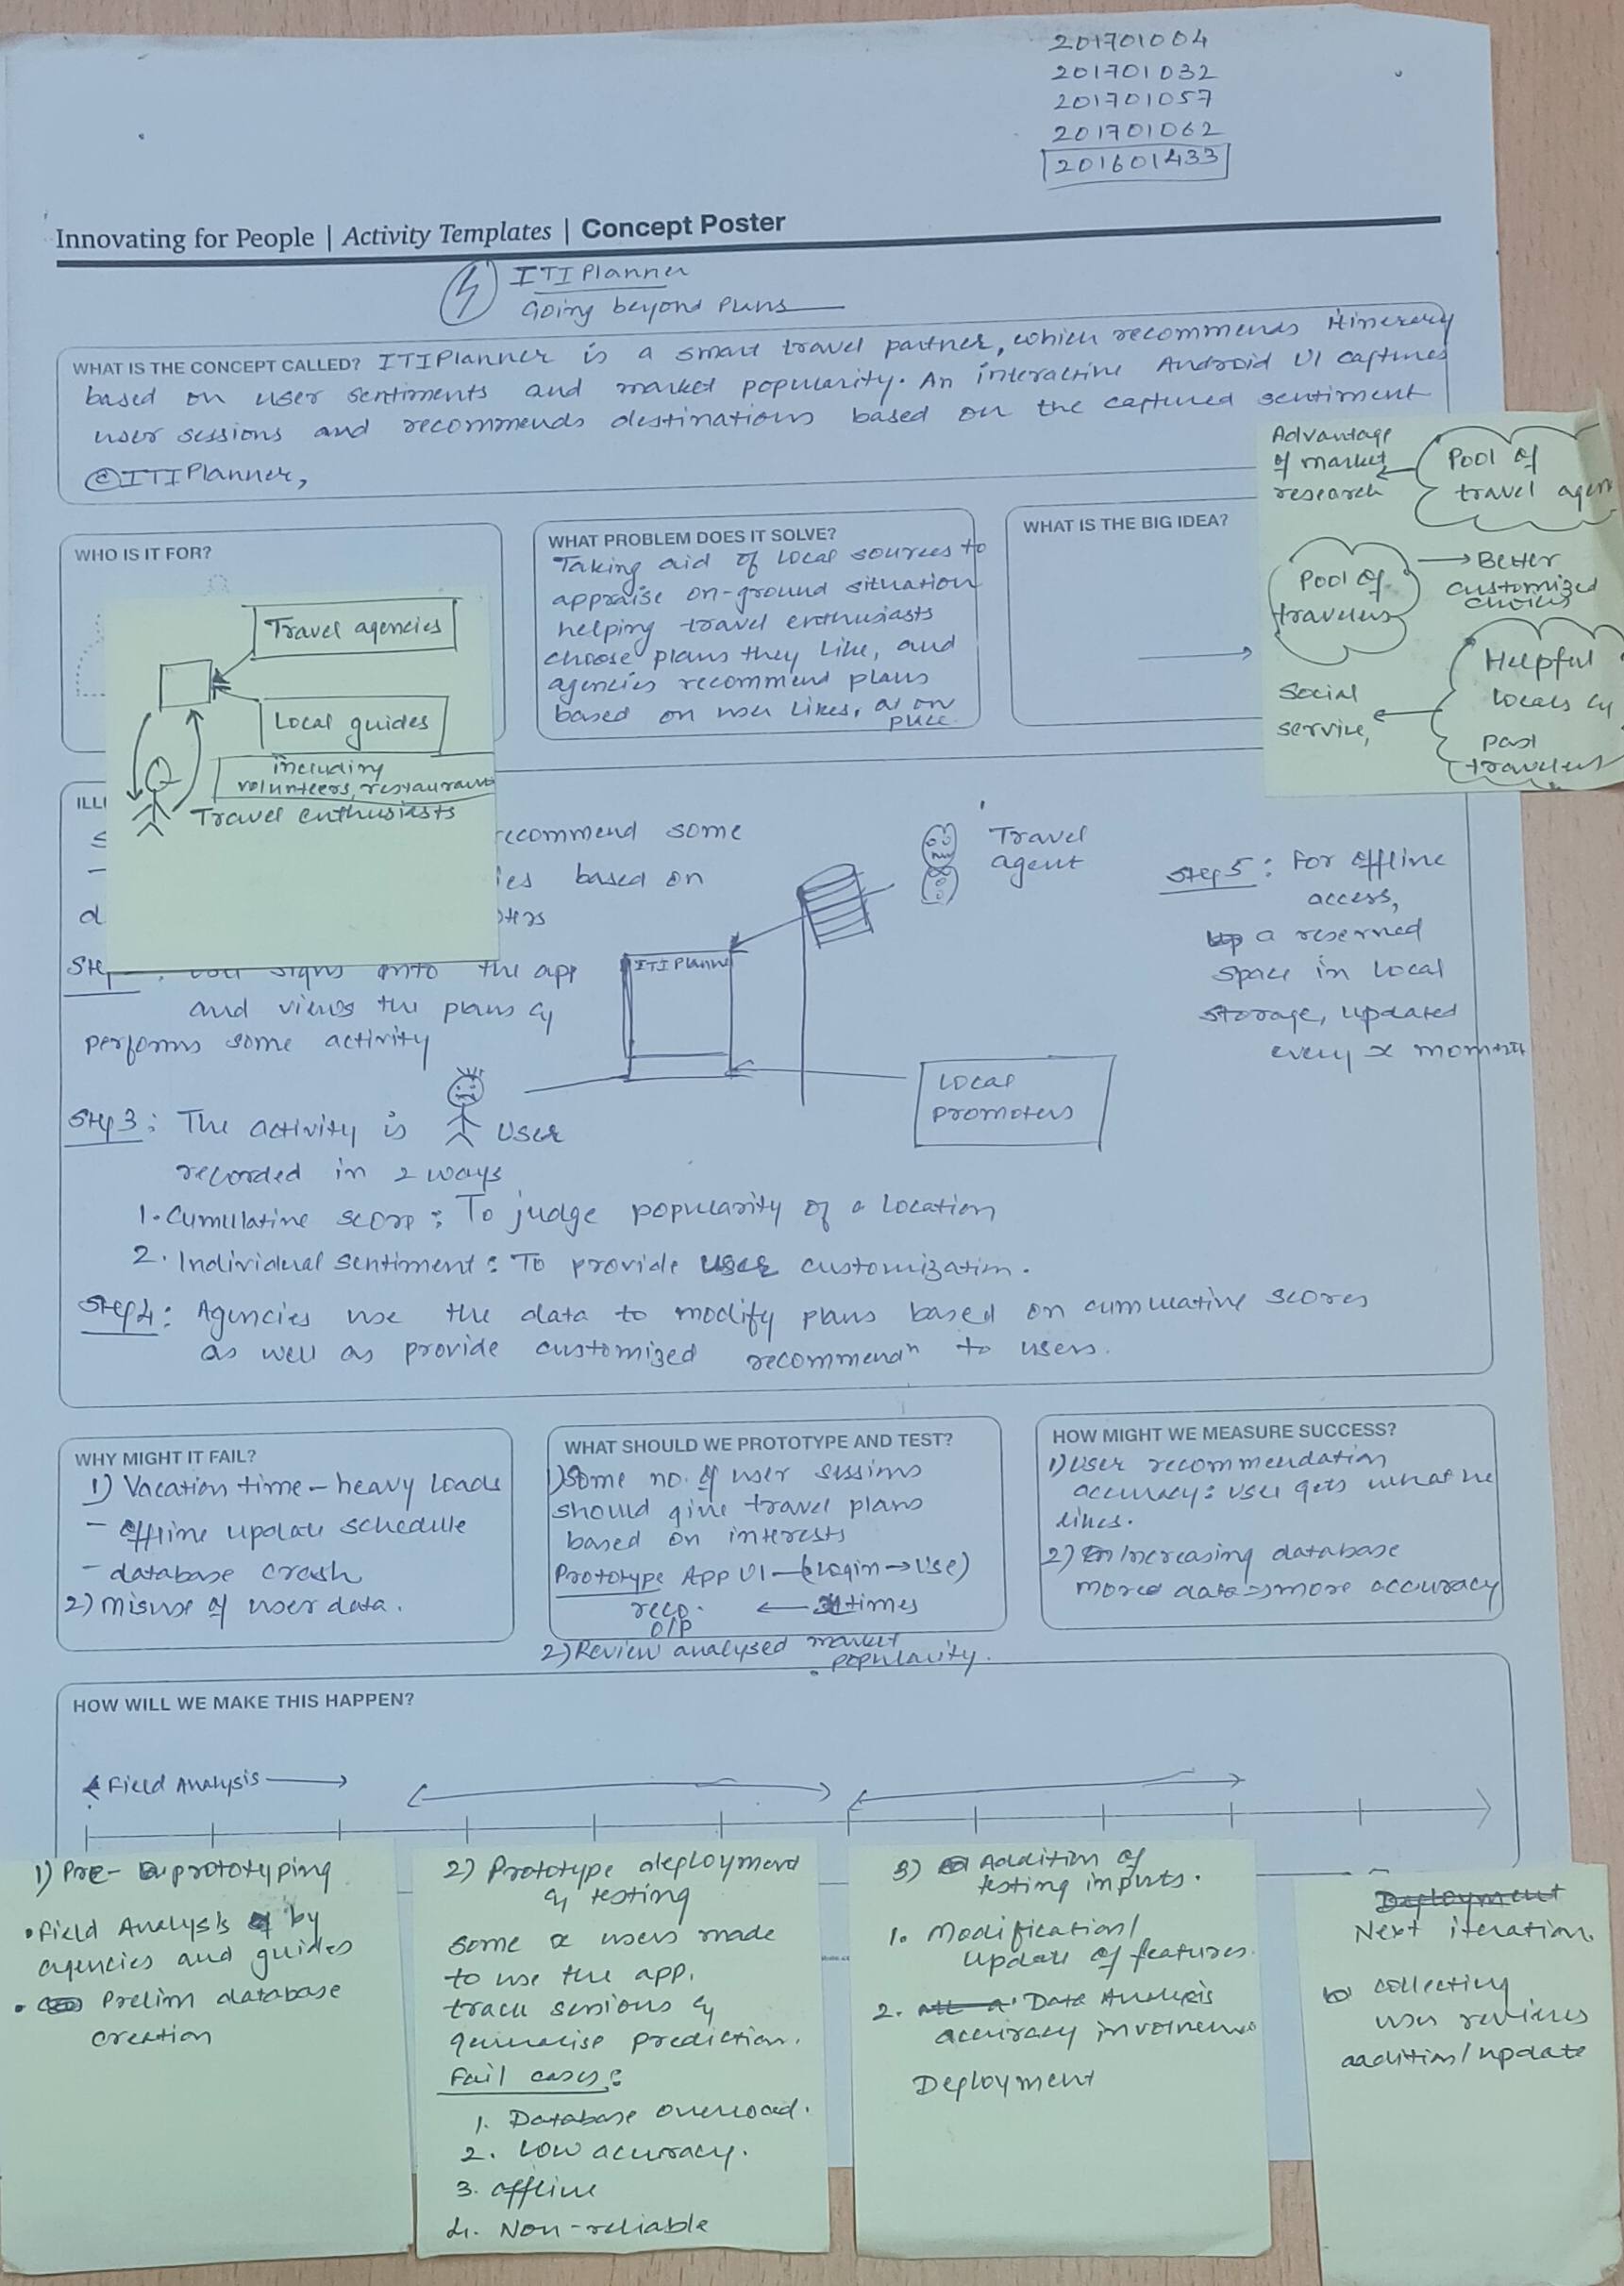 201701004
201701032
201701057
201701062
201601433
Innovating for People | Activity Templates | Concept Poster
ITIPlanner
Going beyond Plans
WHAT IS THE CONCEPT CALLED? ITIPlanner is a smart travel partner, which recommends itinerary
based on user sentiments and market popularity. An interactive Android UI captures
user sessions and recommends destinations based on the captured sentiment
©ITIPlanner,
WHO IS IT FOR?
Travel agencies
Local guides
including
volunteers, restaurants
Travel enthusiasts
WHAT PROBLEM DOES IT SOLVE?
Taking aid of local sources to
appraise on-ground situation
helping travel enthusiasts
choose plans they like, and
agencies recommend plans
based on user likes,
WHAT IS THE BIG IDEA?
Advantage
of market
research
Pool of
travel agen
Pool of
travelers
Better
customized
choices
Social
service,
Helpful
locals &
past
travelers
ILL
recommend some
ies based on
d
Ste
signs onto the app
and views the plans &
performs some activity
Travel
agent
ITIPlanne
User
Local
promoters
Step 3: The activity is
recorded in 2 ways
1. Cumulative score: To judge popularity of a location
2. Individual sentiment: To provide user customization.
Step 4: Agencies use the data to modify plans based on cumulative scores
as well as provide customized recommendⁿ to users.
Step 5: For offline
access,
a reserved
space in local
storage, updated
every x moments
WHY MIGHT IT FAIL?
1) Vacation time - heavy loads
- offline update schedule
- database crash
2) misuse of user data.
WHAT SHOULD WE PROTOTYPE AND TEST?
1) Some no. of user sessions
should give travel plans
based on interests
Prototype App UI - (login → use)
reco. ← x times
O/P
2) Review analysed market
popularity.
HOW MIGHT WE MEASURE SUCCESS?
1) User recommendation
accuracy: user gets what he
likes.
2) Increasing database
more data ⇒ more accuracy
HOW WILL WE MAKE THIS HAPPEN?
Field Analysis
1) Pre- prototyping
• Field Analysis by
agencies and guides
• Prelim database
creation
2) Prototype deployment
& testing
some x users made
to use the app.
track sessions &
prediction.
Fail cases:
1. Database overload.
2. Low accuracy.
3. offline
4. Non-reliable
3) Addition of
testing inputs.
1. Modification/
update of features.
2. Data Analysis
accuracy
Deployment
Deployment
Next iteration.
collecting
user reviews
addition/update